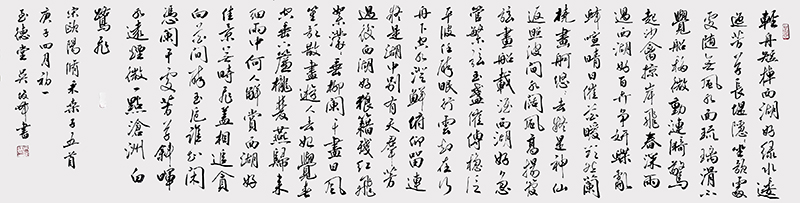 輕舟短棹西湖好綠水逶
迤芳草長堤隱隱笙歌處
處隨無風水面琉璃滑不
覺船移微動漣漪驚
起沙禽掠岸飛春深雨
過西湖好百卉爭妍蝶亂
蜂喧晴日催花暖欲然蘭
橈畫舸悠悠去疑是神仙
返照波間水闊風高揚管
絃畫船載酒西湖好急
管繁絃玉盞催傳穩泛
平波任醉眠行雲卻在行
舟下空水澄鮮俯仰留連
疑是湖中別有天羣芳
過後西湖好狼籍殘紅飛
絮濛濛垂柳闌干盡日風
笙歌散盡遊人去始覺春
空垂下簾櫳雙燕歸來
細雨中何人解賞西湖好
佳景無時飛蓋相追貪
向花間醉玉卮誰知閑
憑闌干處芳草斜暉
水遠煙微一點滄洲白
鷺飛
宋歐陽脩采桑子五首
庚子四月初一
玉德堂吳峰書